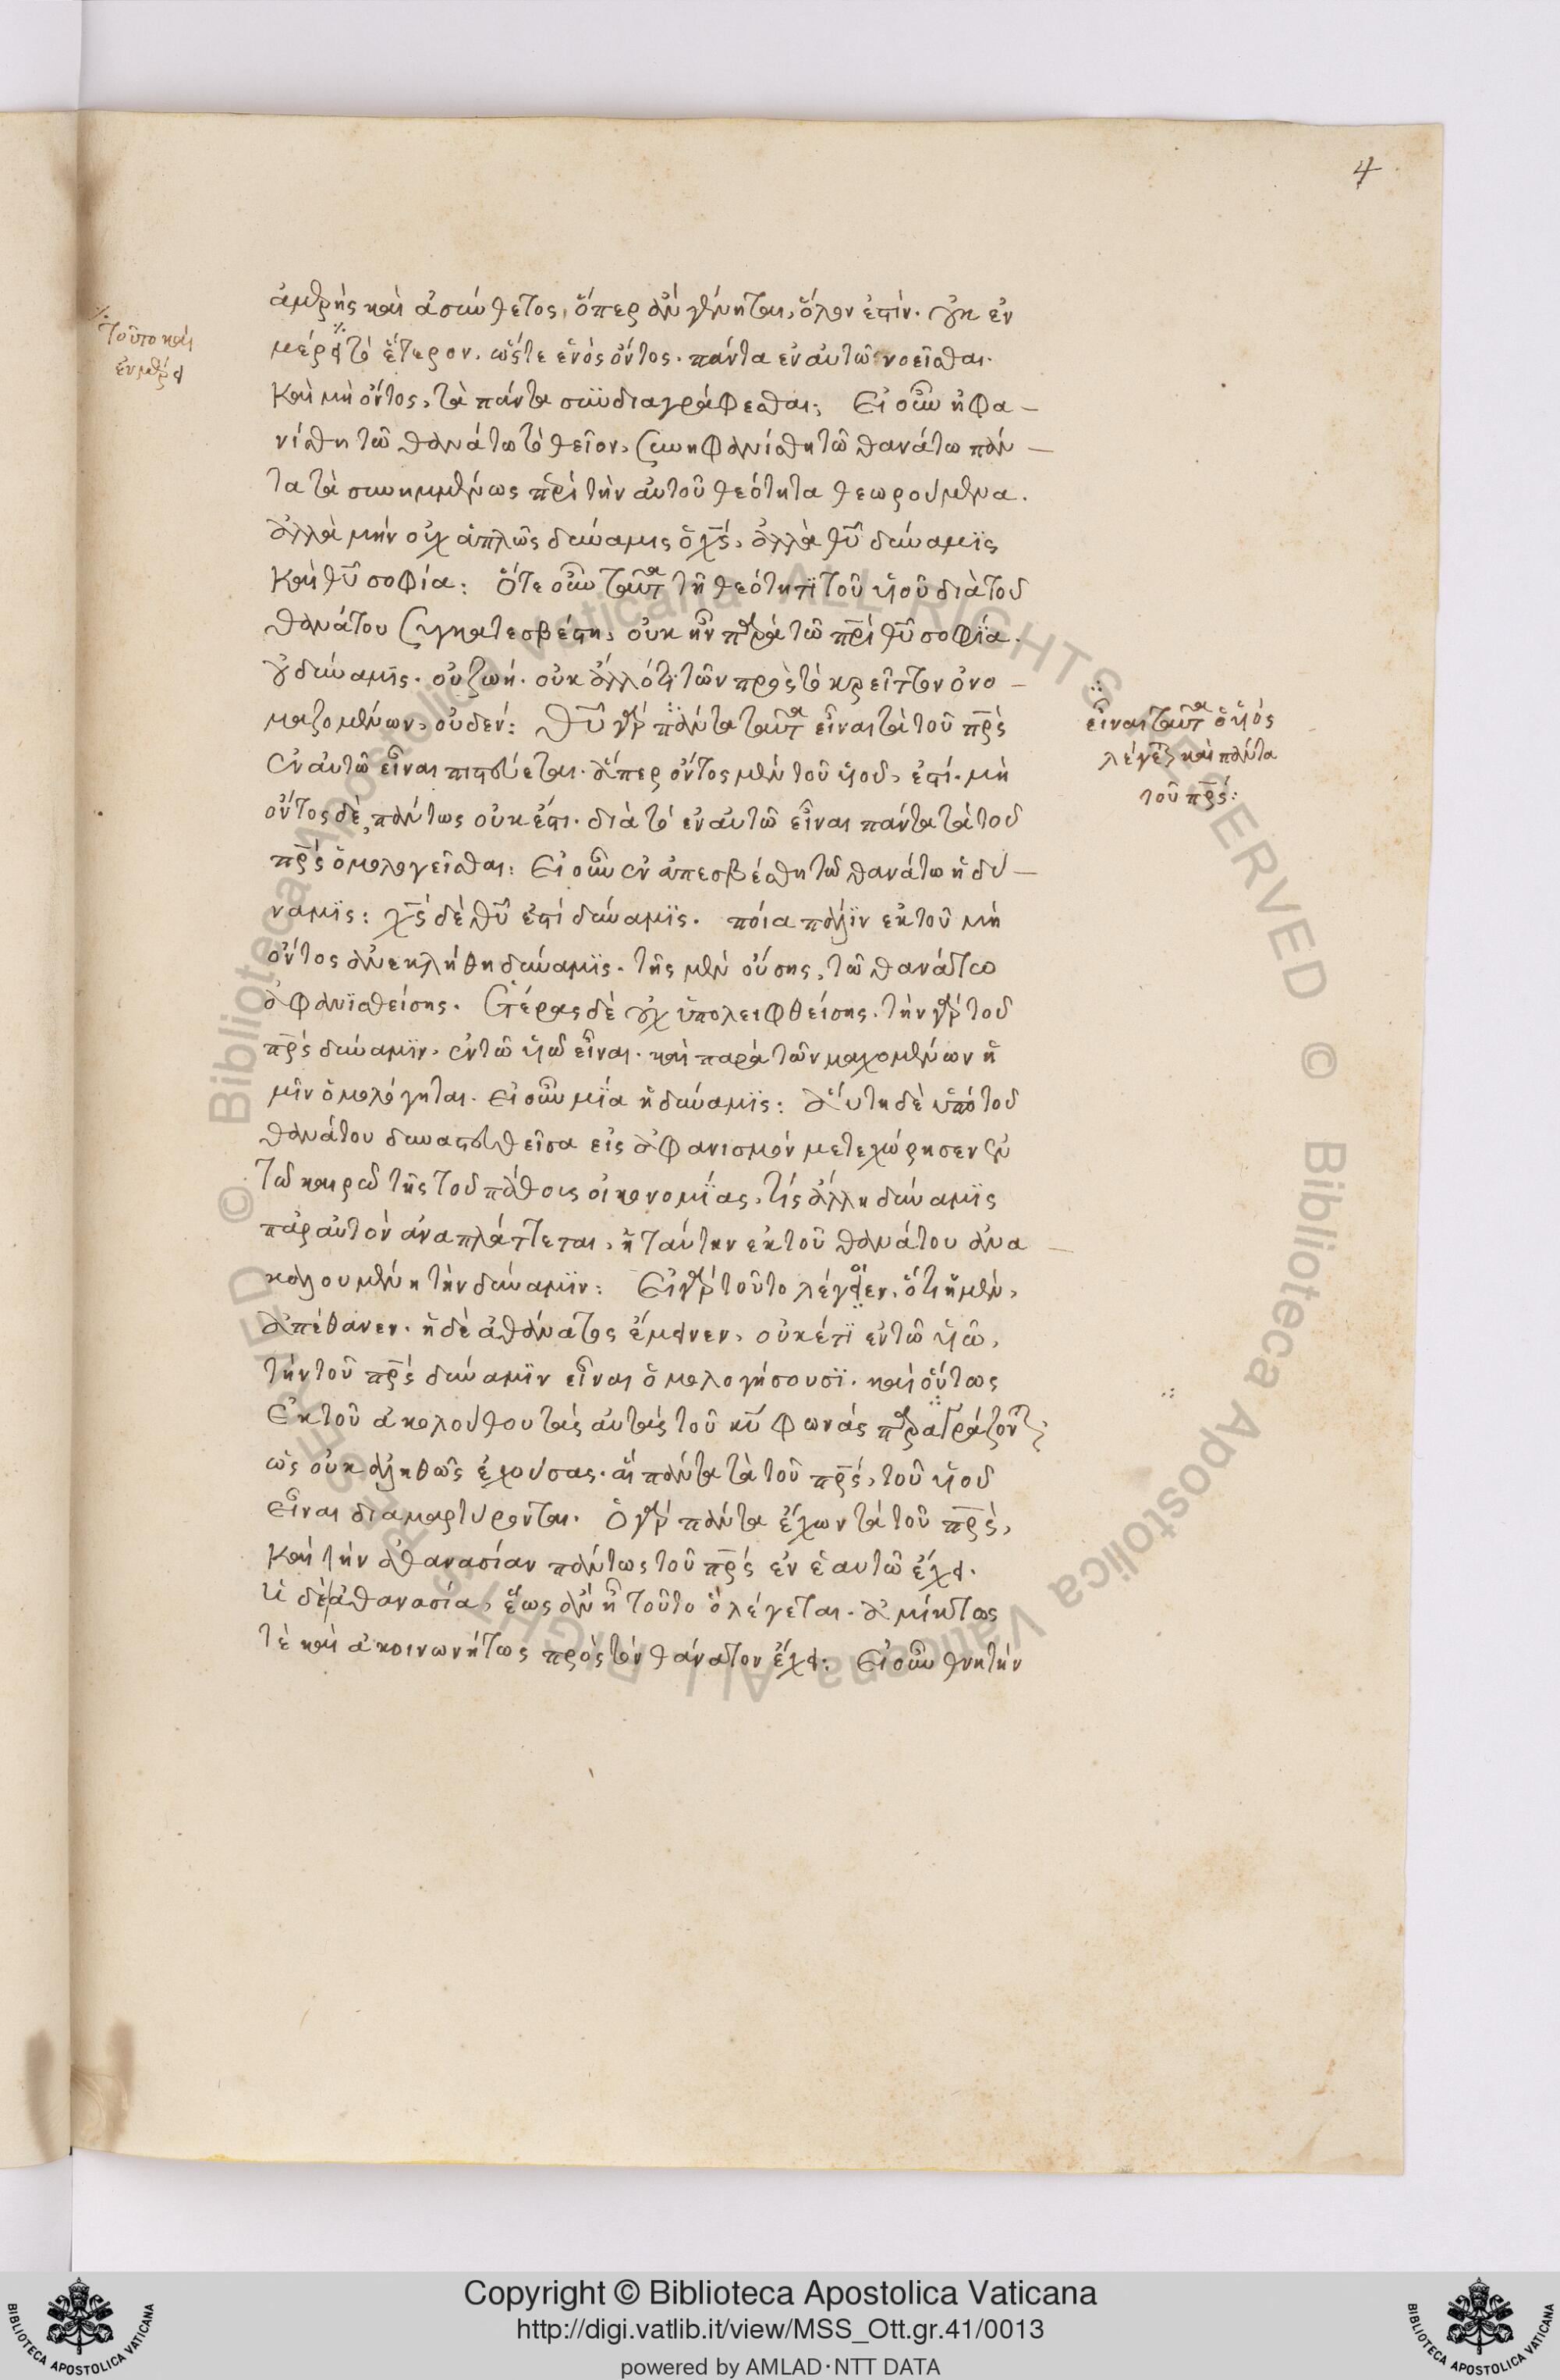 4
ἀμερὴς καὶ ἀσύνθετος, ὅπερ ἂν γένηται, ὅλον ἐστίν. οὐκ ἐν
μέρει τὸ ἕτερον. ὥστε ἑνὸς ὄντος. πάντα ἐν αὐτῶ νοεῖσθαι.
καὶ μὴ ὄντος, τὰ πάντα συνδιαγράφεσθαι; Εἰ οὖν ἠφα–
νίσθη τῶ θανάτω τὸ θεῖον, συνηφανίσθη τῶ θανάτω πάν–
τα τὰ συνημμένως περὶ τὴν αὐτοῦ θεότητα θεωρούμενα.
ἀλλὰ μὴν οὐχ ἁπλῶς δύναμις ὁ χς, ἀλλὰ θυ δύναμϊς
καὶ θυ σοφία: Ὅτε οὖν ταῦτα τῆ θεότητϊ τοῦ υἱοῦ διὰ τοῦ
θανάτου συγκατεσβέστη, οὐκ ἦν παρὰ τῶ πρι θυ σοφϊα.
οὐ δύναμϊς. οὐ ζωή. οὐκ ἄλλό τϊ τῶν πρὸς τὸ κρεῖττον ὀνο–
μαζομένων, οὐδέν: Θυ γὰρ πάντα ταῦτα εἶναι τὰ τοῦ πρς
ἐν αὐτῶ εἶναι πιστεύεται. ἅπερ ὄντος μὲν τοῦ υἱοῦ, ἐστί. μὴ
ὄντος δὲ, πάντως οὐκ ἔστι. διὰ τὸ ἐν αὐτῶ εἶναι πάντα τὰ τοῦ
πρς ὁμολογεῖσθαι: Εἰ οὖν ἐναπεσβέσθη τῶ θανάτω ἡ δύ–
ναμϊς: χς δὲ θυ ἐστὶ δύναμϊς. ποία πάλϊν ἐκ τοῦ μὴ
ὄντος ἀνεκλήθη δύναμϊς. τῆς μὲν οὔσης, τῶ θανάτω
ἀφανϊσθείσης. ἑτέρας δὲ οὐχ ὑπολειφθείσης. τὴν γὰρ τοῦ
πρς δύναμϊν, ἐν τῶ υἱῶ εἶναι. καὶ παρὰ τῶν μαχομένων ἡ
μῖν ὁμολόγηται. εἰ οὖν μϊα ἡ δύναμϊς: αὕτη δὲ ὑπὸ τοῦ
θανάτου δυναστευθεῖσα εἰς ἀφανισμὸν μετεχώρησεν ἐν
τῶ καιρῶ τῆς τοῦ πάθους οἰκονομϊας, τίς ἄλλη δύναμϊς
παρ αὐτὸν ἀναπλάττεται, ἡ ταύτην ἐκ τοῦ θανάτου ἀνα–
καλουμένη τὴν δύναμϊν: Εἰ γὰρ τοῦτο λέγοιεν, ὅτι ἡ μὲν,
ἀπέθανεν. ἡ δὲ ἀθάνατος ἔμεινεν, οὐκέτϊ ἐν τῶ υἱῶ,
τὴν τοῦ πρς δύναμϊν εἶναι ὁμολογήσουσϊ. καὶ οὕτως
ἐκ τοῦ ἀκολούθου τὰς αὐτὰς τοῦ κυ φωνὰς παραγράφοντες
ὡς οὐκ ἀληθῶς ἐχούσας. αἳ πάντα τὰ τοῦ πρς, τοῦ υἱοῦ
εἶναι διαμαρτύρονται. Ὁ γὰρ πάντα ἔχων τὰ τοῦ πρς,
καὶ τὴν ἀθανασίαν πάντως τοῦ πρς ἐν ἑαυτῶ ἔχει.
ἡ δὲ ἀθανασία, ἕως ἂν ἦ τοῦτο ὃ λέγεται. ἀμίκτως
τὲ καὶ ἀκοινωνήτως πρὸς τὸν θάνατον ἔχει: Εἰ οὖν θνητὴν
τοῦτο καὶ
ἐν μέρει
εἶναι ταῦτα ὁ υἱός
λέγει καὶ πάντα
τοῦ πρς:
© Biblioteca Apostolica Vaticana ALL RIGHTS RESERVED © Biblioteca Apostolica Vaticana ALL RIGHTS RESERVED
BIBLIOTECA APOSTOLICA VATICANA
Copyright © Biblioteca Apostolica Vaticana
http://digi.vatlib.it/view/MSS_Ott.gr.41/0013
powered by AMLAD·NTT DATA
BIBLIOTECA APOSTOLICA VATICANA